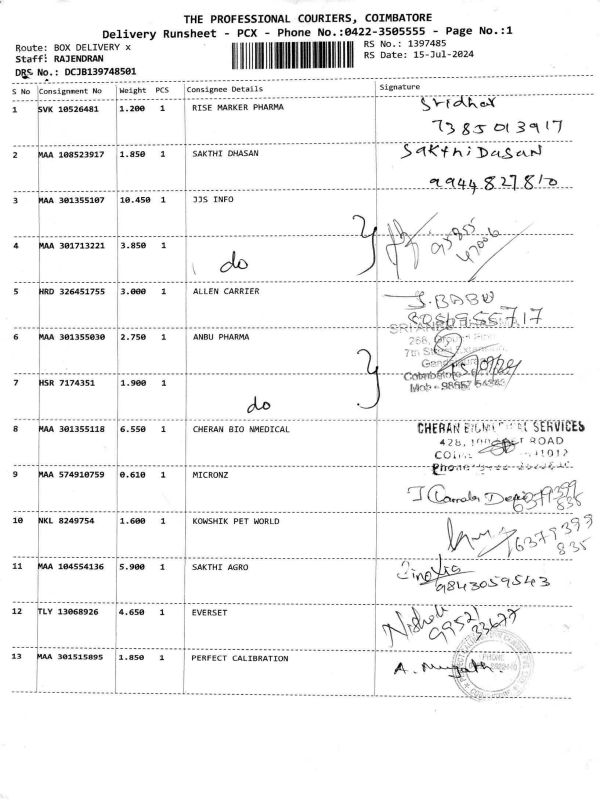 THE PROFESSIONAL COURIERS, COIMBATORE
Delivery Runsheet - PCX - Phone No.:0422-3505555 - Page No.:1
Route: BOX DELIVERY x
RS No.: 1397485
Staff: RAJENDRAN
RS Date: 15-Jul-2024
DRS No.: DCJB139748501
S No Consignment No Weight PCS Consignee Details Signature
1 SVK 10526481 1.200 1 RISE MARKER PHARMA Sridhar
7385013917
2 MAA 108523917 1.850 1 SAKTHI DHASAN SakthiDasan
9944827810
3 MAA 301355107 10.450 1 JJS INFO
95855
47006
4 MAA 301713221 3.850 1
do
5 HRD 326451755 3.000 1 ALLEN CARRIER J. BABU
6 MAA 301355030 2.750 1 ANBU PHARMA
7 HSR 7174351 1.900 1
do
8 MAA 301355118 6.550 1 CHERAN BIO NMEDICAL CHERAN SERVICES
ROAD
9 MAA 574910759 0.610 1 MICRONZ
6379399
835
10 NKL 8249754 1.600 1 KOWSHIK PET WORLD
6379399
835
11 MAA 104554136 5.900 1 SAKTHI AGRO
9843059543
12 TLY 13068926 4.650 1 EVERSET
99521
33677
13 MAA 301515895 1.850 1 PERFECT CALIBRATION